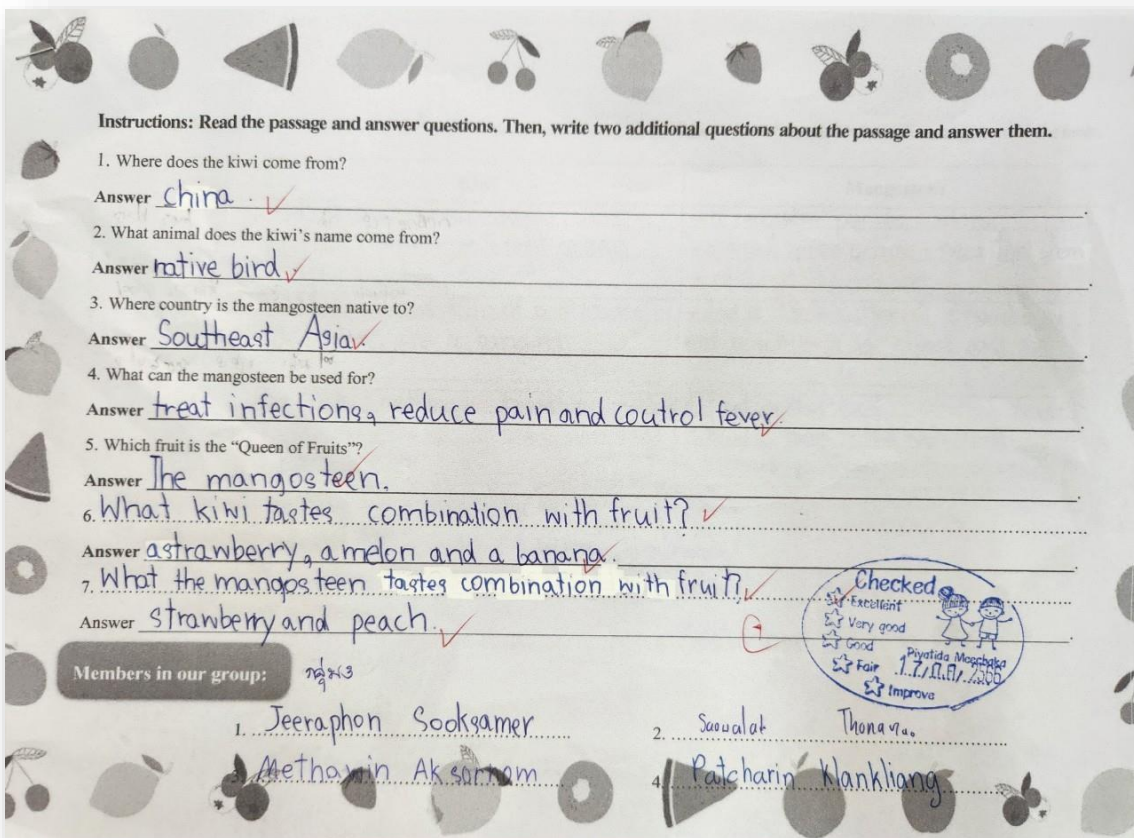 Instructions: Read the passage and answer questions. Then, write two additional questions about the passage and answer them.
1. Where does the kiwi come from?
Answer china.
2. What animal does the kiwi's name come from?
Answer native bird
3. Where country is the mangosteen native to?
Answer Southeast Asia.
4. What can the mangosteen be used for?
Answer treat infections, reduce pain and coutrol fever.
5. Which fruit is the "Queen of Fruits"?
Answer The mangosteen.
6. What kiwi tastes combination with fruit?
Answer a strawberry, a melon and a banana.
7. What the mangosteen tastes combination with fruit?
Answer strawberry and peach.
Checked
Excellent
Very good
Good
Fair
Improve
Piyatida
17/ก.ค./2566
Members in our group: กลุ่ม 3
1. Jeeraphon Sooksamer
2. Saowalak
3. Methawin Aksornam
4. Patcharin Klankliang